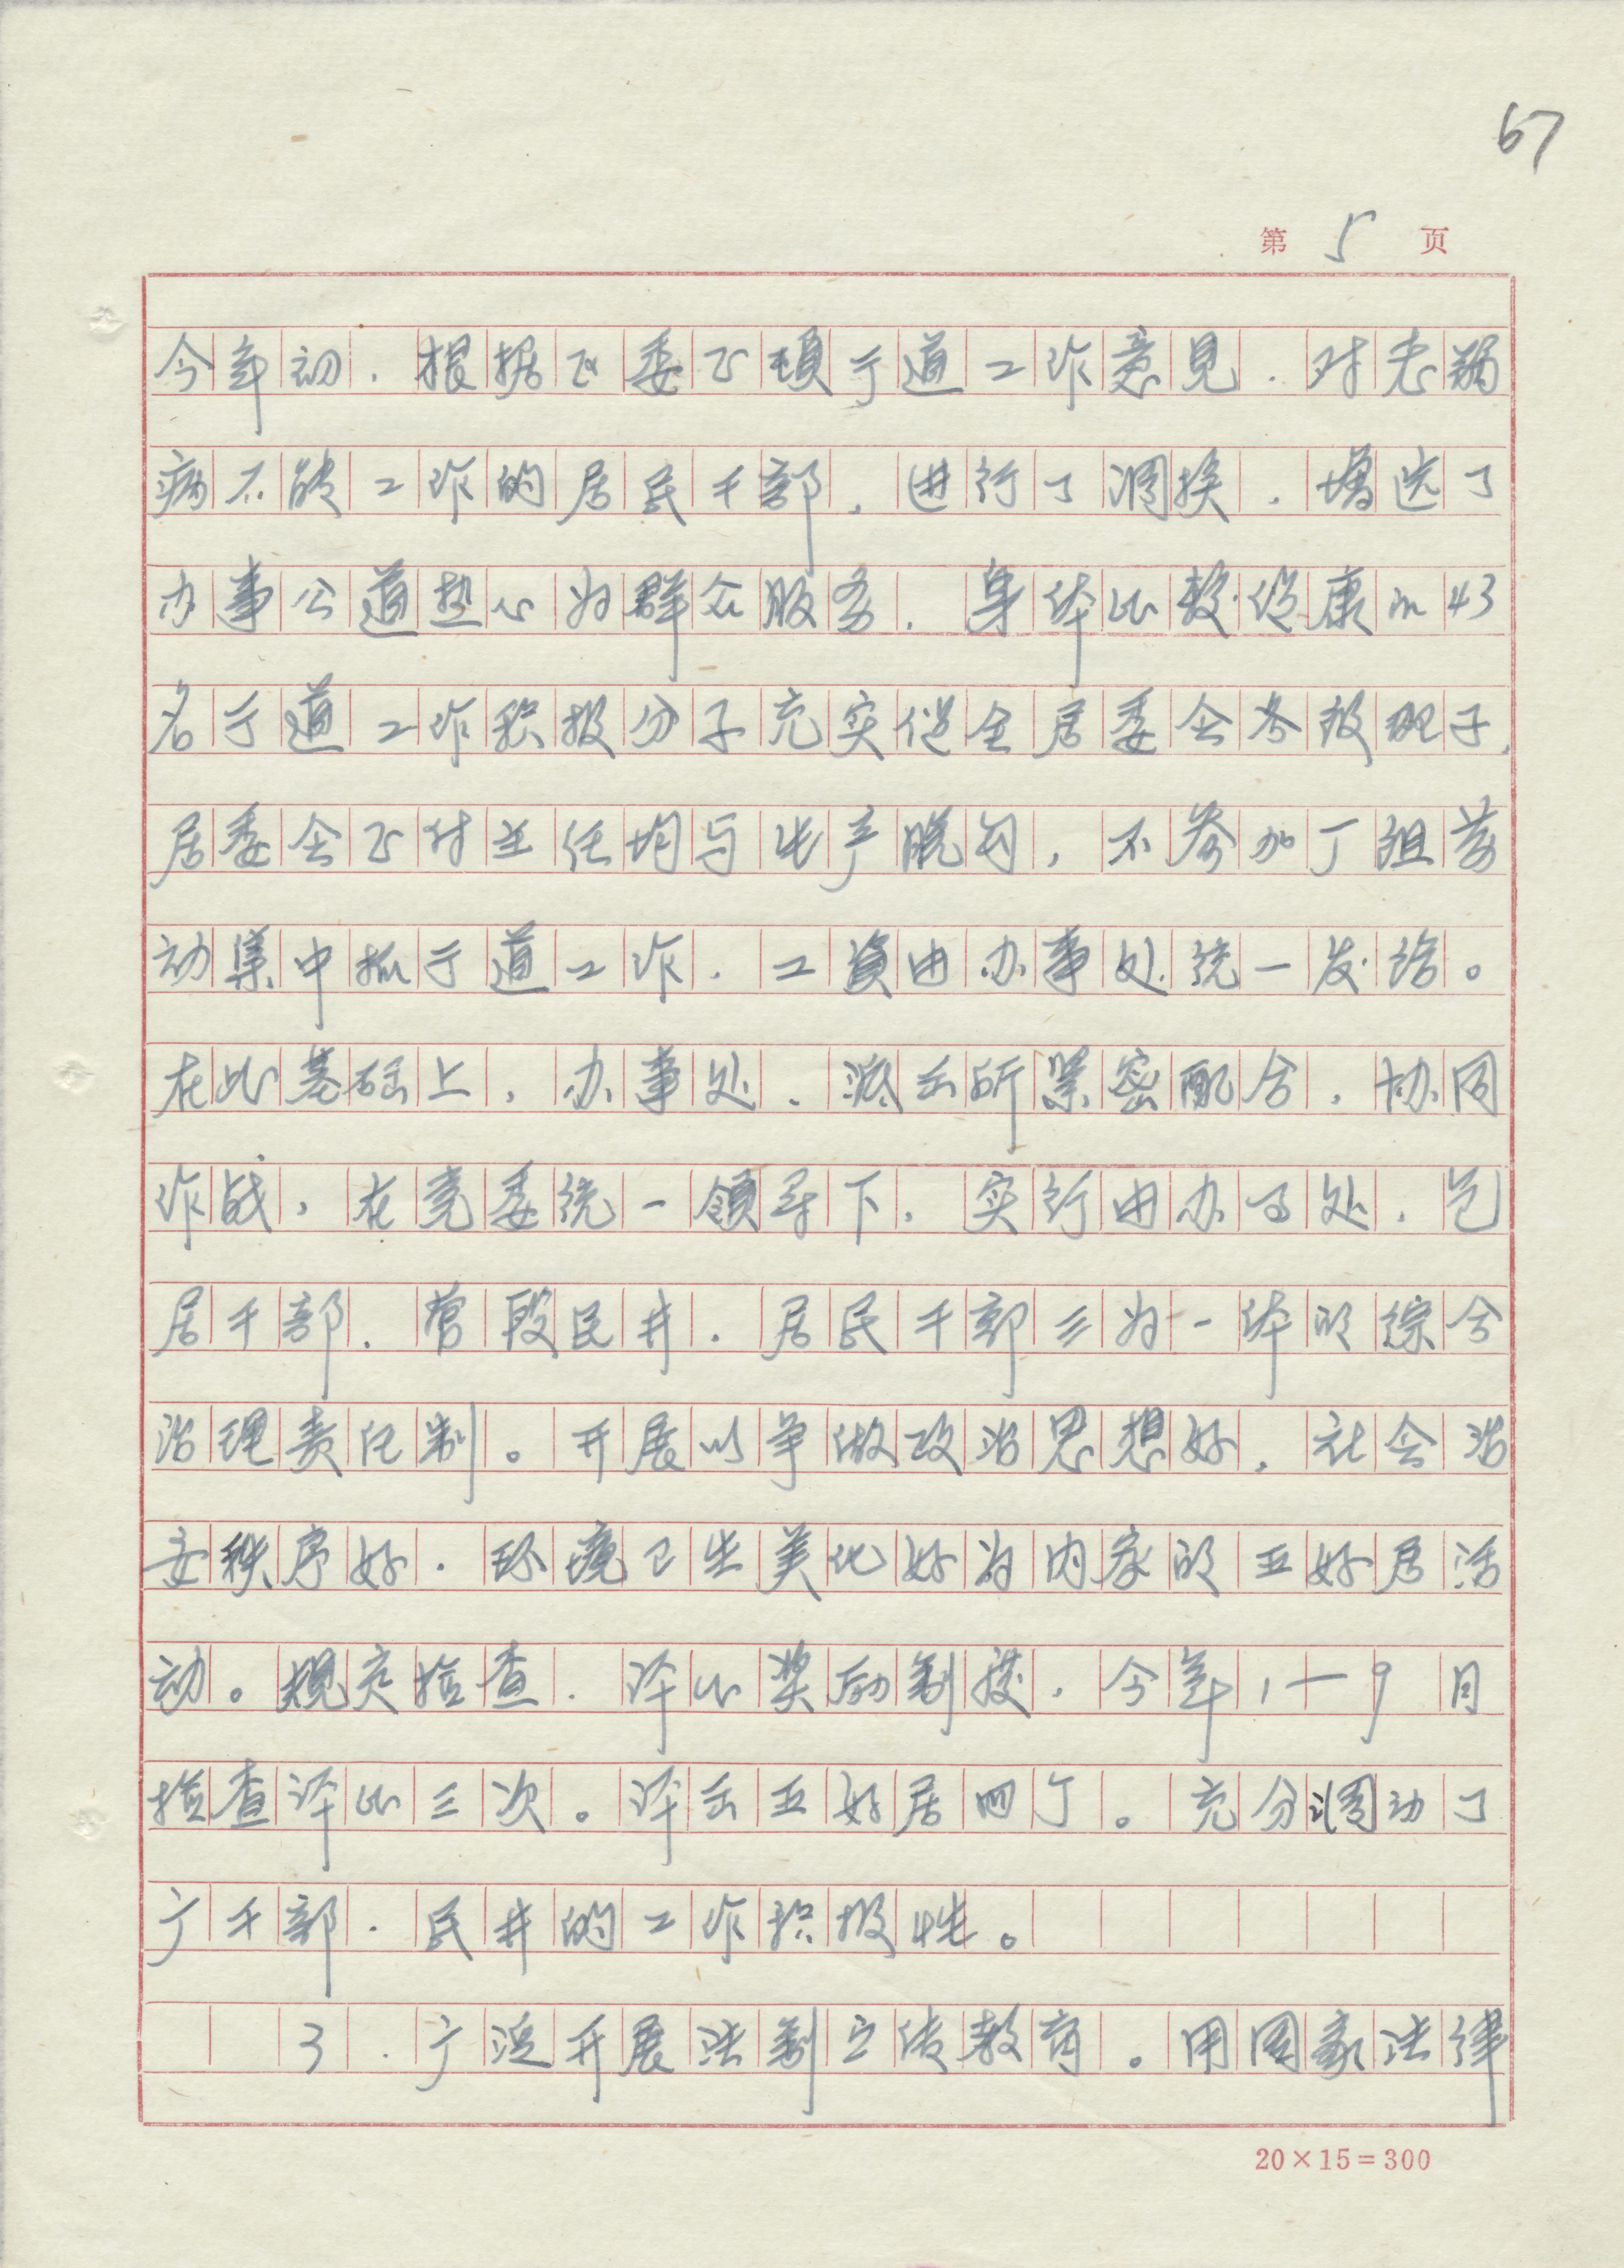 67
第 5 页
今年初．根据区委正顿于道工作意见．对老弱
病不能工作的居民干部，进行了调换．增选了
办事公道热心为群众服务．身体比较健康的43
名于道工作积极分子充实健全居委会各级班子，
居委会正付主任均与生产脱勾，不参加丁组劳
动集中抓于道工作．工资由办事处统一发给。
在此基础上，办事处、派出所紧密配合，协同
作战，在党委统一领导下，实行由办事处．包
居干部．管段民井．居民干部三为一体的综合
治理责任制。开展以争做政治思想好，社会治
安秩序好．环境卫生美化好为内容的五好居活
动。规定检查．评比奖励制度，今年1—9月
检查评比三次。评出五好居四丁。充分调动了
广干部．民井的工作积极性。
3．广泛开展法制宣传教育。用国家法律
20×15=300